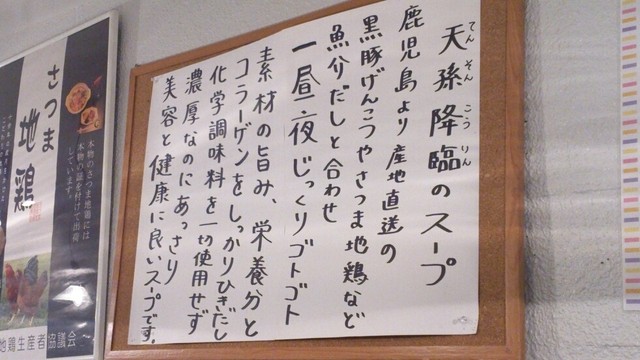 天孫降臨のスープ
てんそんこうりん
鹿児島より産地直送の
黒豚げんこつやさつま地鶏など
魚介だしと合わせ
一昼一夜じっくりゴトゴト
素材の旨み、栄養分と
コラーゲンをしっかりひきだし
化学調味料を一切使用せず
濃厚なのにあっさり
美容と健康に良いスープです。
本物のさつま地鶏には
本物の品を付けて出荷
しています。
さつま
地鶏
地鶏生産者協議会